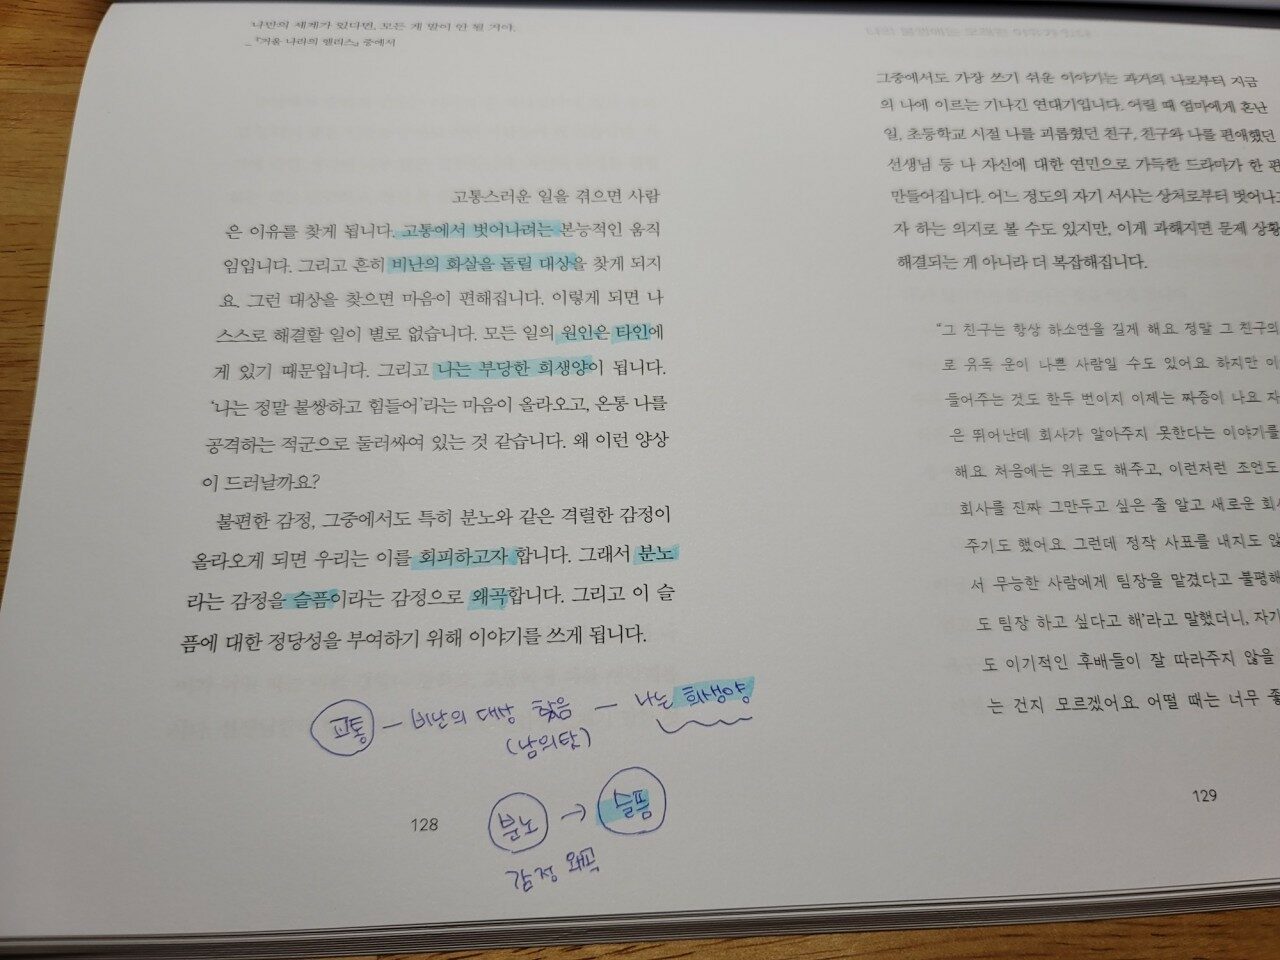 나만의 세계가 있다면, 모든 게 말이 안 될 거야.
_『거울 나라의 앨리스』 중에서
고통스러운 일을 겪으면 사람
은 이유를 찾게 됩니다. 고통에서 벗어나려는 본능적인 움직
임입니다. 그리고 흔히 비난의 화살을 돌릴 대상을 찾게 되지
요. 그런 대상을 찾으면 마음이 편해집니다. 이렇게 되면 나
스스로 해결할 일이 별로 없습니다. 모든 일의 원인은 타인에
게 있기 때문입니다. 그리고 나는 부당한 희생양이 됩니다.
'나는 정말 불쌍하고 힘들어'라는 마음이 올라오고, 온통 나를
공격하는 적군으로 둘러싸여 있는 것 같습니다. 왜 이런 양상
이 드러날까요?
불편한 감정, 그중에서도 특히 분노와 같은 격렬한 감정이
올라오게 되면 우리는 이를 회피하고자 합니다. 그래서 분노
라는 감정을 슬픔이라는 감정으로 왜곡합니다. 그리고 이 슬
픔에 대한 정당성을 부여하기 위해 이야기를 쓰게 됩니다.
고통 - 비난의 대상 찾음 - 나는 희생양
(남의탓)
분노 → 슬픔
감정 왜곡
128
그중에서도 가장 쓰기 쉬운 이야기는 과거의 나로부터 지금
의 나에 이르는 기나긴 연대기입니다. 어릴 때 엄마에게 혼난
일, 초등학교 시절 나를 괴롭혔던 친구, 친구와 나를 편애했던
선생님 등 나 자신에 대한 연민으로 가득한 드라마가 한 편
만들어집니다. 어느 정도의 자기 서사는 상처로부터 벗어나고
자 하는 의지로 볼 수도 있지만, 이게 과해지면 문제 상황
해결되는 게 아니라 더 복잡해집니다.
"그 친구는 항상 하소연을 길게 해요. 정말 그 친구의
로 유독 운이 나쁜 사람일 수도 있어요. 하지만 이
들어주는 것도 한두 번이지 이제는 짜증이 나요. 자
은 뛰어난데 회사가 알아주지 못한다는 이야기를
해요. 처음에는 위로도 해주고, 이런저런 조언도
회사를 진짜 그만두고 싶은 줄 알고 새로운 회사
주기도 했어요. 그런데 정작 사표를 내지도 않
서 무능한 사람에게 팀장을 맡겼다고 불평해
도 팀장 하고 싶다고 해'라고 말했더니, 자기
도 이기적인 후배들이 잘 따라주지 않을
는 건지 모르겠어요. 어떨 때는 너무 좋
129